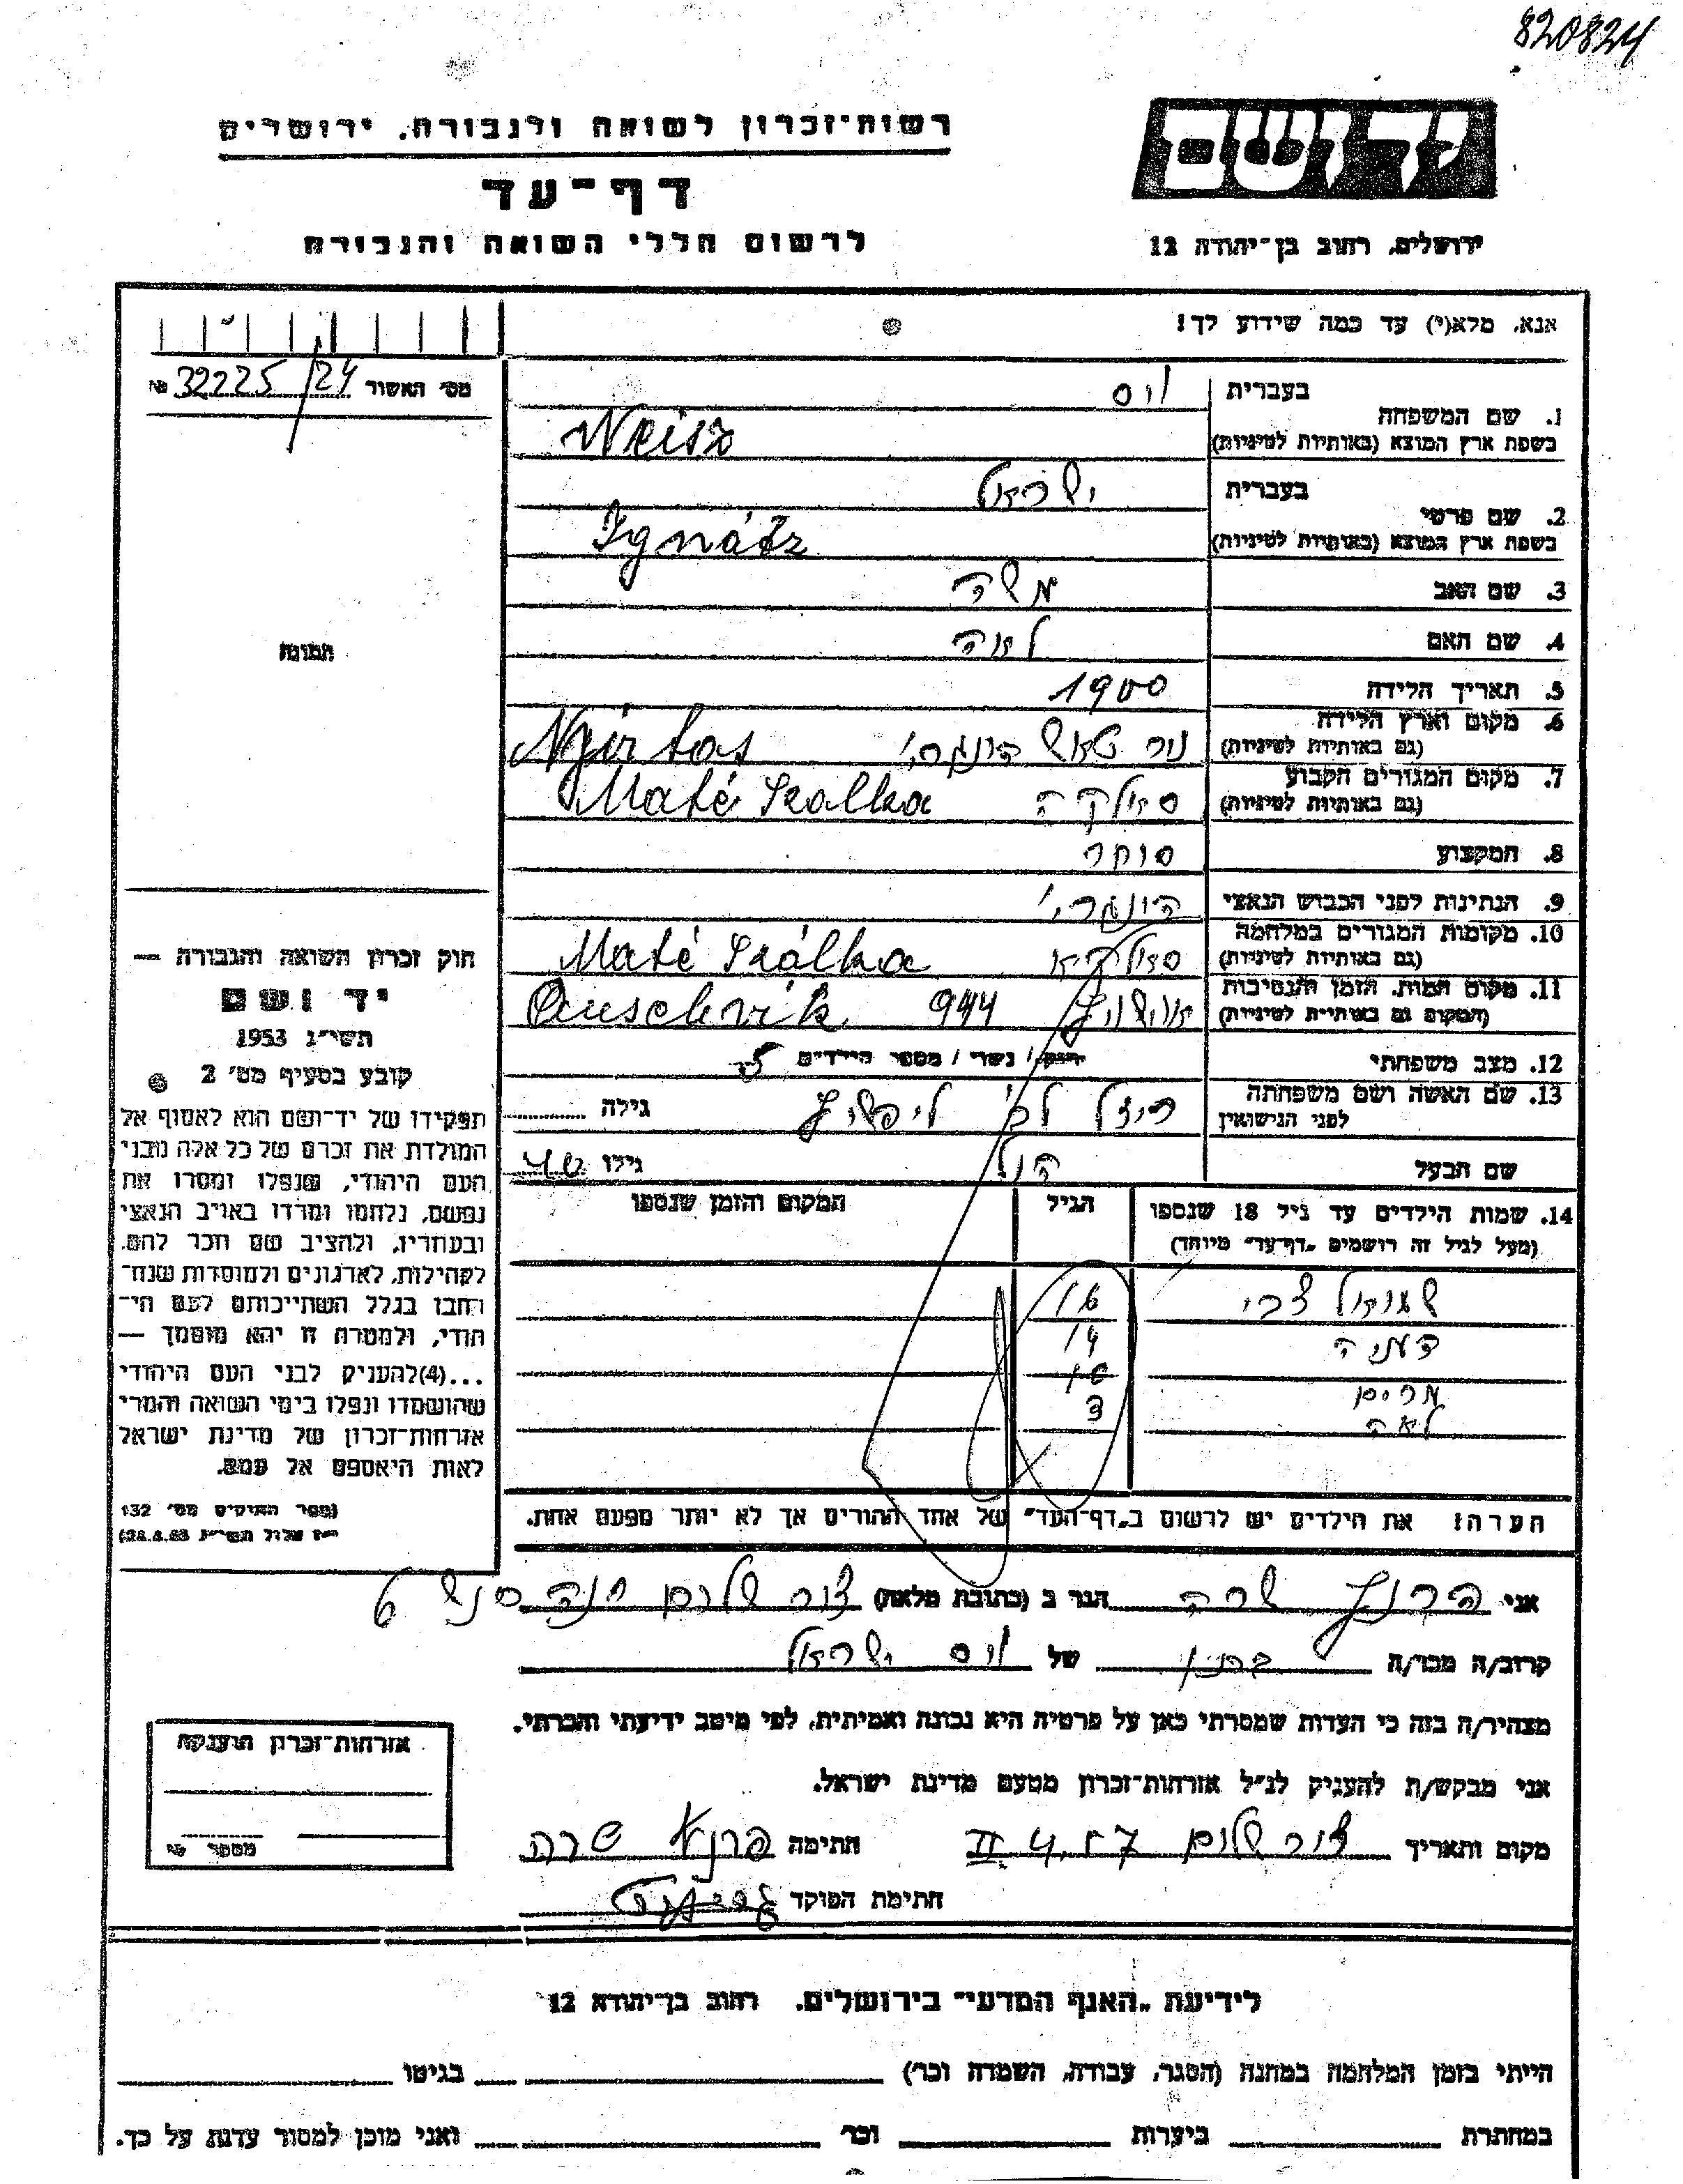 820824
רשות־זכרון לשואה ולגבורה, ירושלים
יד ושם
דף־עד
לרשום חללי השואה והגבורה
ירושלים, רחוב בן־יהודה 12
אנא, מלא(י) עד כמה שידוע לך!
מס׳ האשור 32225/24 №
1. שם המשפחה
בעברית וייס
בשפת ארץ המוצא (באותיות לטיניות) Weisz
2. שם פרטי
בעברית ישראל
בשפת ארץ המוצא (באותיות לטיניות) Ignátz
3. שם האב משה
4. שם האם לאה
תמונה
5. תאריך הלידה 1900
6. מקום וארץ הלידה
(גם באותיות לטיניות) ניר טאש הונגרי׳ Njirtas
7. מקום המגורים הקבוע
(גם באותיות לטיניות) סאלקה Maté Szalka
8. המקצוע סוחר
9. הנתינות לפני הכבוש הנאצי הונגרי׳
10. מקומות המגורים במלחמה
(גם באותיות לטיניות) סאלקא Maté Szálka
11. מקום המות, הזמן והנסיבות
(המקום גם באותיות לטיניות) אושויץ 944 Auschvik
12. מצב משפחתי רווק / נשוי / מספר הילדים 5
13. שם האשה ושם משפחתה
לפני הנישואין לבי ליפשיץ גילה
שם הבעל הנ״ל גילו 44
14. שמות הילדים עד גיל 18 שנספו
(מעל לגיל זה רושמים „דף־עד״ מיוחד)
הגיל
המקום והזמן שנספו
שמואל צבי 16
14
מרים 10
לאה 3
הערה! את הילדים יש לרשום ב„דף־העד״ של אחד ההורים אך לא יותר מפעם אחת.
חוק זכרון השואה והגבורה —
יד ושם
תשי״ג 1953
קובע בסעיף מס׳ 2
תפקידו של יד־ושם הוא לאסוף אל
המולדת את זכרם של כל אלה מבני
העם היהודי, שנפלו ומסרו את
נפשם, נלחמו ומרדו באויב הנאצי
ובעוזריו, ולהציב שם וזכר להם,
לקהילות, לארגונים ולמוסדות שנח־
רבו בגלל השתייכותם לעם הי־
הודי, ולמטרה זו יהא מוסמך —
...(4)להעניק לבני העם היהודי
שהושמדו ונפלו בימי השואה והמרי
אזרחות־זכרון של מדינת ישראל
לאות היאספם אל עמם.
(ספר החוקים מס׳ 132
י״ז אלול תשי״ג 28.8.53)
אני שרה הגר ב (כתובת מלאה) צור שלום חנה סנש 6
קרוב/ה מכר/ה של וייס ישראל
מצהיר/ה בזה כי העדות שמסרתי כאן על פרטיה היא נכונה ואמיתית, לפי מיטב ידיעתי והכרתי.
אני מבקש/ת להעניק לנ״ל אזרחות־זכרון מטעם מדינת ישראל.
מקום ותאריך צור שלום חתימה שרה
חתימת הפוקד
אזרחות־זכרון הוענקה
מספר №
לידיעת „האגף המדעי״ בירושלים, רחוב בן־יהודה 12
הייתי בזמן המלחמה במחנה (הסגר, עבודה, השמדה וכו׳) בגיטו
במחתרת ביערות וכו׳ ואני מוכן למסור עדות על כך.